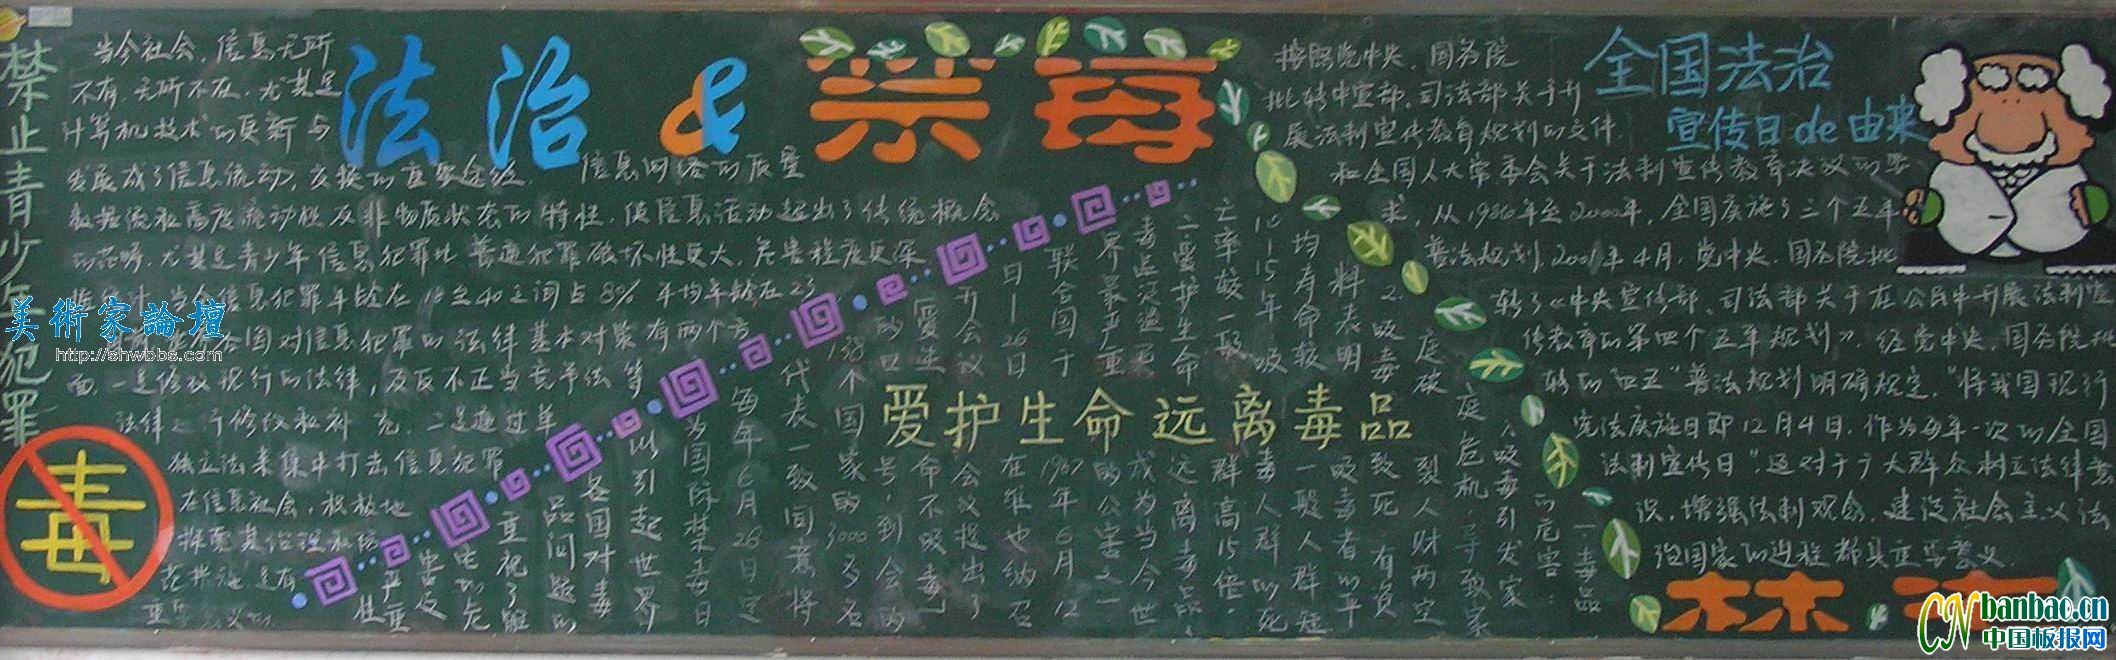 禁止青少年犯罪
当今社会，信息无所
不有，无所不在，尤其是
计算机技术的更新与
发展成了信息流动，交换的重要途径。信息网络的
数据流和高度流动性及非物质状态的特性，使信息活动超出了传统概念
的范畴，尤其是青少年信息犯罪比普通犯罪破坏性更大，危害程度更深
信息犯罪年龄在18至40之间占80% 平均年龄在23
国对信息犯罪的法律基本对策有两个方
面，一是修改现行的法律，及反不正当竞争法等
法律 予修改和补充，二是通过单
独立法来集中打击信息犯罪
在信息社会，积极地
探索其治理和防
范措施具有
重要意义的
毒
法治&禁毒
按照党中央、国务院
批转中宣部，司法部关于开
展法制宣传教育规划的文件
和全国人大常委会关于法制宣传教育决议的要
求，从1986年至2000年，全国实施了三个五年
普法规划，2001年4月，党中央、国务院批
转了《中央宣传部、司法部关于在公民中开展法制宣
传教育的第四个五年规划》。经党中央、国务院批
转的"四五"普法规划明确规定，"将我国现行
宪法实施日即12月4日，作为每年一次的全国
法制宣传日"。这对于广大群众树立法律意
识，增强法制观念，建设社会主义法
治国家的进程都具重要意义
全国法治
宣传日de由来
爱护生命远离毒品
一、毒品
的危害：
1、吸毒引发家
庭危机，导致家
庭破裂人财两空
2、吸毒致死，有资
料表明吸毒者的平
均寿命较一般人群短
10-15年，吸毒人群的死
亡率较一般群高15倍。
二、爱护生命远离毒品
成为当今世
界最严重的公害之一
联合国于1987年6月12
日—26日在维也纳召
开会议会议提出了
"爱生命不吸毒"
的口号，到会的
138个国家的3000多名
代表一致同意将
每年6月26日定
为国际禁毒日
以引起世界
各国对毒
品问题的
重视
美術家論壇
http://shwbbs.com
CN banbao.cn
中国板报网